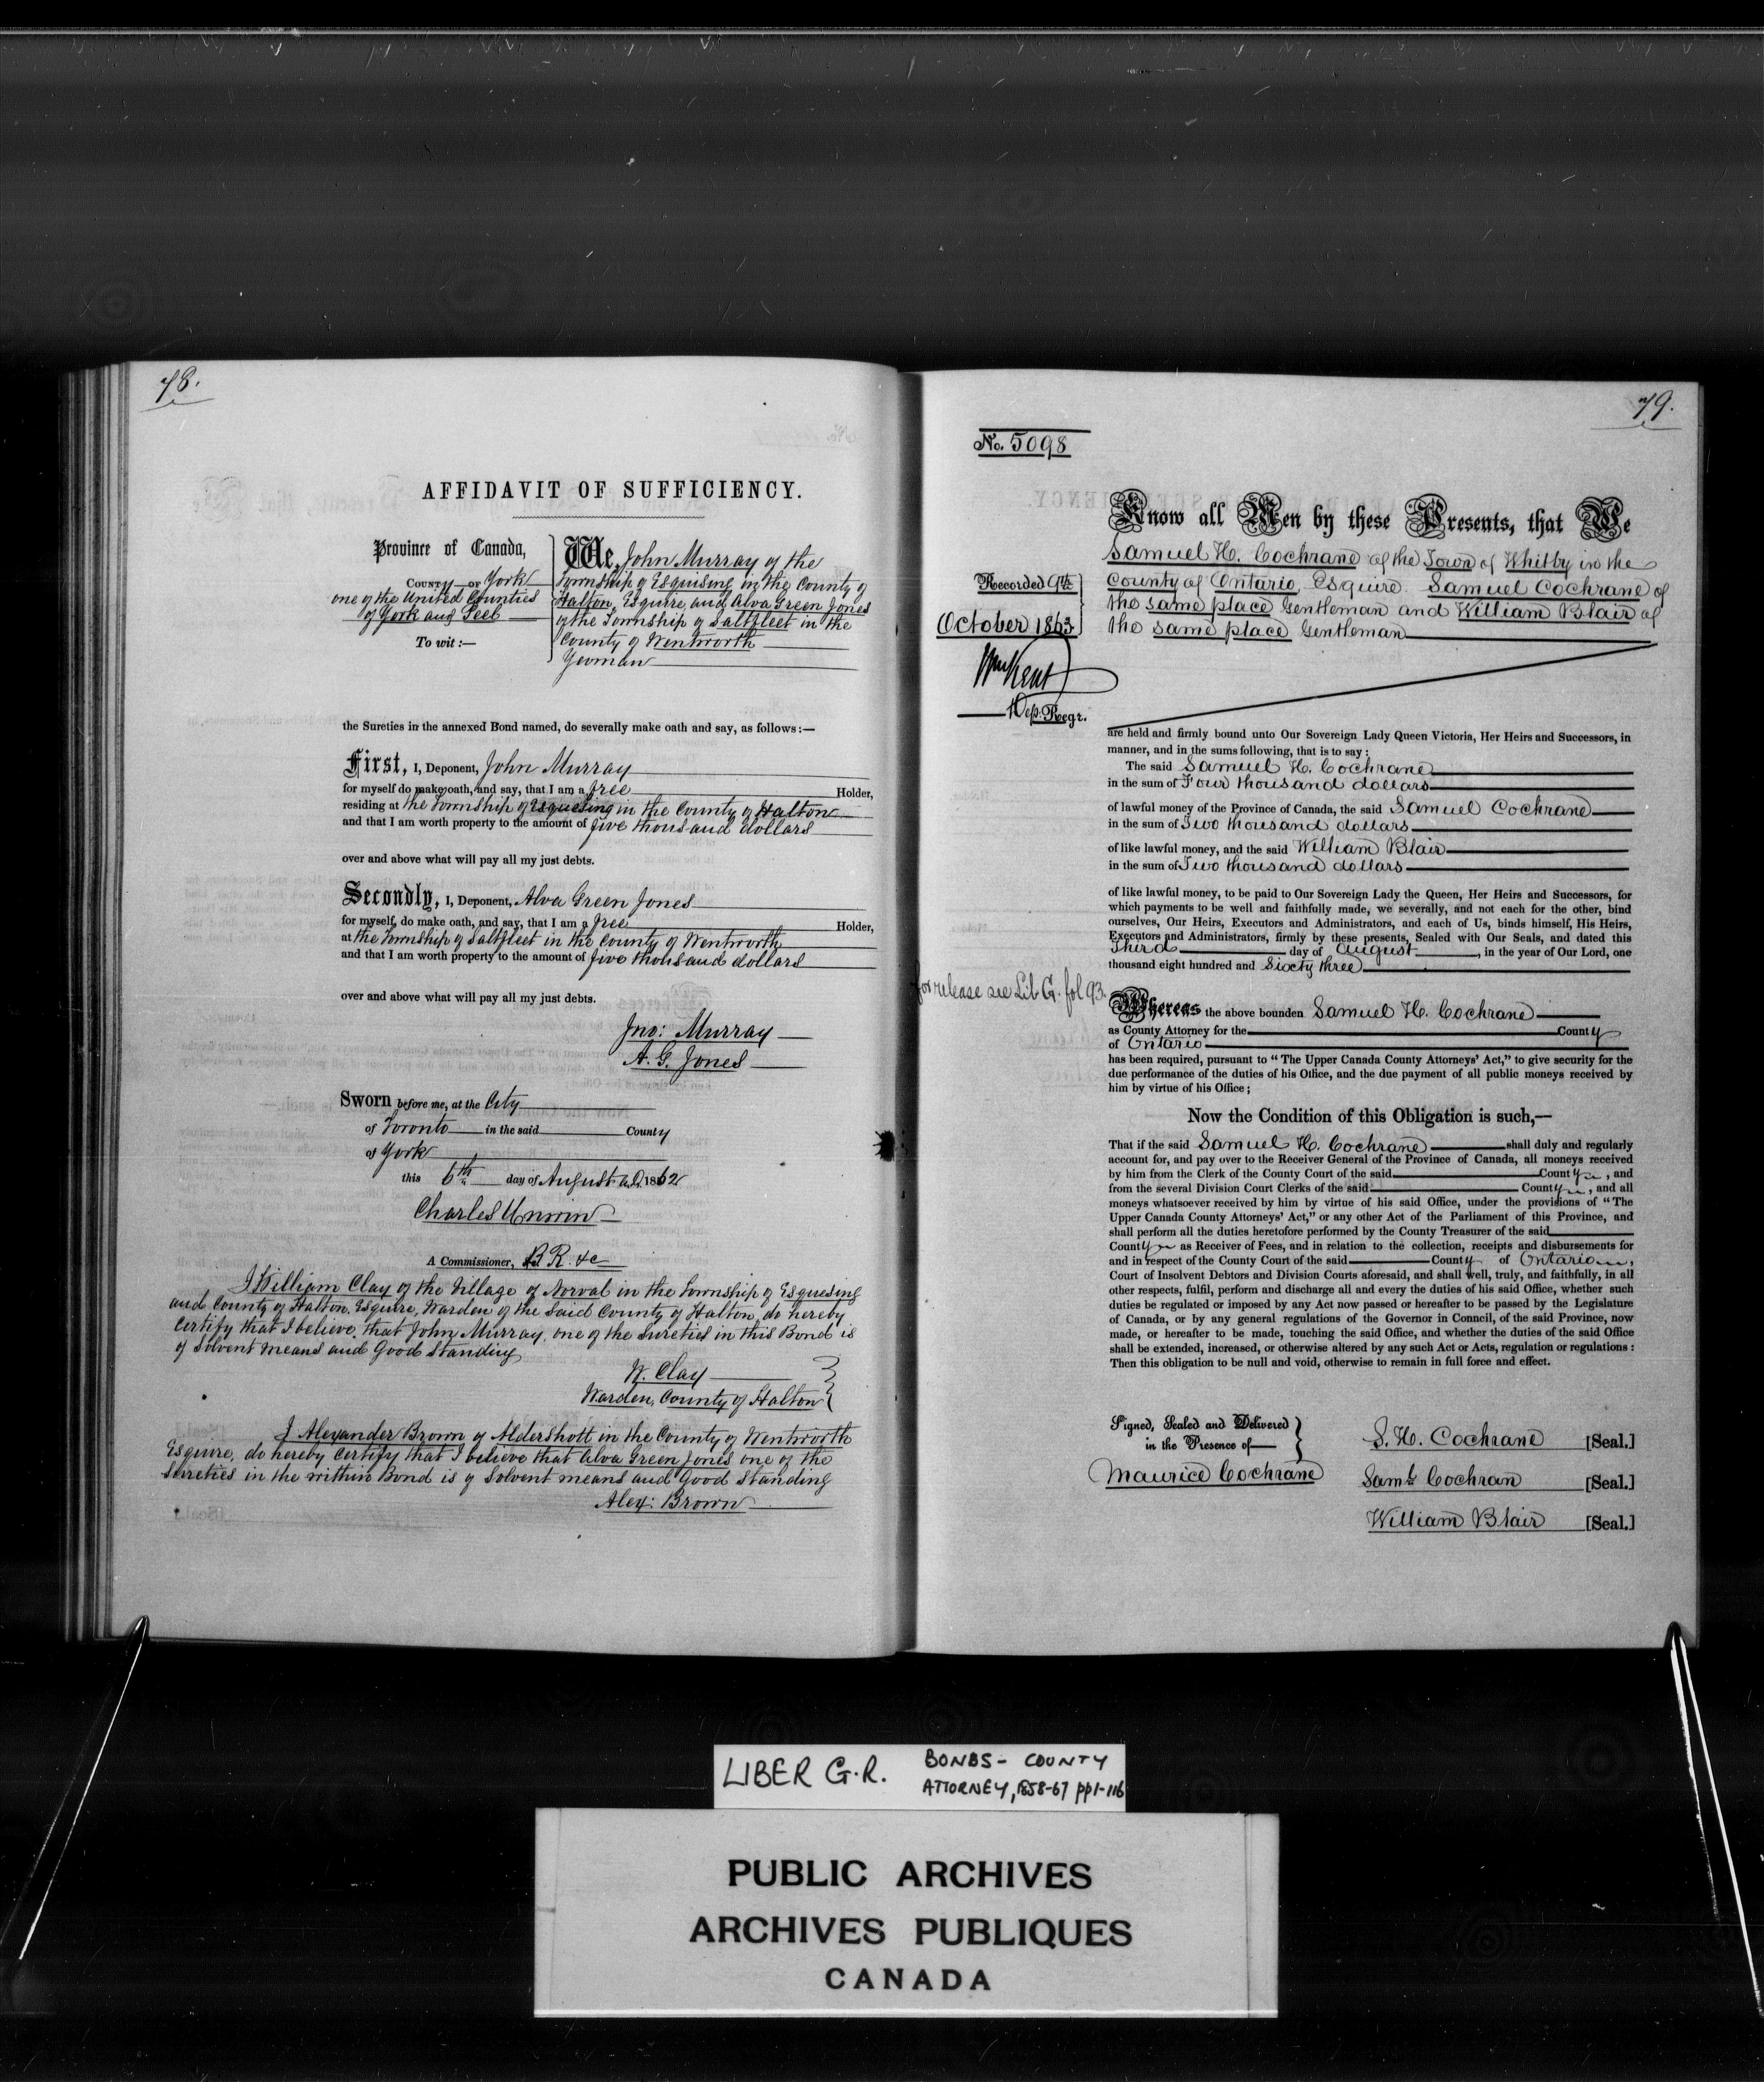 78.
AFFIDAVIT OF SUFFICIENCY.
Province of Canada,
COUNTY OF York
one of the United Counties
of York and Peel
To wit:—
We, John Murray of the
Township of Esquising in the County of
Halton, Esquire, and Alva Green Jones
of the Township of Saltfleet in the
County of Wentworth
Yeoman
the Sureties in the annexed Bond named, do severally make oath and say, as follows:—
First, I, Deponent, John Murray
for myself do make oath, and say, that I am a free Holder,
residing at the Township of Esquesing in the County of Halton
and that I am worth property to the amount of five thousand dollars
over and above what will pay all my just debts.
Secondly, I, Deponent, Alva Green Jones
for myself, do make oath, and say, that I am a free Holder,
at the Township of Saltfleet in the County of Wentworth
and that I am worth property to the amount of five thousand dollars
over and above what will pay all my just debts.
Jno: Murray
A. G. Jones
Sworn before me, at the City
of Toronto in the said County
of York
this 6th day of August A.D. 1862
Charles Unwin
A Commissioner, B.R. &c
I William Clay of the Village of Norval in the Township of Esquesing
and County of Halton, Esquire, Warden of the said County of Halton, do hereby
certify that I believe, that John Murray, one of the Sureties in this Bond is
of Solvent means and Good Standing
W. Clay
Warden, County of Halton
I Alexander Brown of Aldershott in the County of Wentworth
Esquire, do hereby certify that I believe that Alva Green Jones one of the
Sureties in the within Bond is of Solvent means and Good Standing
Alex: Brown
79.
No. 5098
Recorded 9th
October 1863
Wm Kent
Dep. Regr.
for release see Lib G. fol 93.
Know all Men by these Presents, that We
Samuel H. Cochrane of the Town of Whitby in the
County of Ontario, Esquire. Samuel Cochrane of
the same place Gentleman and William Blair of
the same place Gentleman
are held and firmly bound unto Our Sovereign Lady Queen Victoria, Her Heirs and Successors, in
manner, and in the sums following, that is to say:
The said Samuel H. Cochrane
in the sum of Four thousand dollars
of lawful money of the Province of Canada, the said Samuel Cochrane
in the sum of Two thousand dollars
of like lawful money, and the said William Blair
in the sum of Two thousand dollars
of like lawful money, to be paid to Our Sovereign Lady the Queen, Her Heirs and Successors, for
which payments to be well and faithfully made, we severally, and not each for the other, bind
ourselves, Our Heirs, Executors and Administrators, and each of Us, binds himself, His Heirs,
Executors and Administrators, firmly by these presents, Sealed with Our Seals, and dated this
Third day of August, in the year of Our Lord, one
thousand eight hundred and Sixty three
Whereas the above bounden Samuel H. Cochrane
as County Attorney for the County
of Ontario
has been required, pursuant to "The Upper Canada County Attorneys' Act," to give security for the
due performance of the duties of his Office, and the due payment of all public moneys received by
him by virtue of his Office;
Now the Condition of this Obligation is such,—
That if the said Samuel H. Cochrane shall duly and regularly
account for, and pay over to the Receiver General of the Province of Canada, all moneys received
by him from the Clerk of the County Court of the said County, and
from the several Division Court Clerks of the said County, and all
moneys whatsoever received by him by virtue of his said Office, under the provisions of "The
Upper Canada County Attorneys' Act," or any other Act of the Parliament of this Province, and
shall perform all the duties heretofore performed by the County Treasurer of the said
County as Receiver of Fees, and in relation to the collection, receipts and disbursements for
and in respect of the County Court of the said County of Ontario,
Court of Insolvent Debtors and Division Courts aforesaid, and shall well, truly, and faithfully, in all
other respects, fulfil, perform and discharge all and every the duties of his said Office, whether such
duties be regulated or imposed by any Act now passed or hereafter to be passed by the Legislature
of Canada, or by any general regulations of the Governor in Council, of the said Province, now
made, or hereafter to be made, touching the said Office, and whether the duties of the said Office
shall be extended, increased, or otherwise altered by any such Act or Acts, regulation or regulations:
Then this obligation to be null and void, otherwise to remain in full force and effect.
Signed, Sealed and Delivered
in the Presence of—
Maurice Cochrane
S. H. Cochrane [Seal.]
Saml. Cochran [Seal.]
William Blair [Seal.]
LIBER G.R.
BONDS - COUNTY
ATTORNEY, 1858-67 pp1-116
PUBLIC ARCHIVES
ARCHIVES PUBLIQUES
CANADA